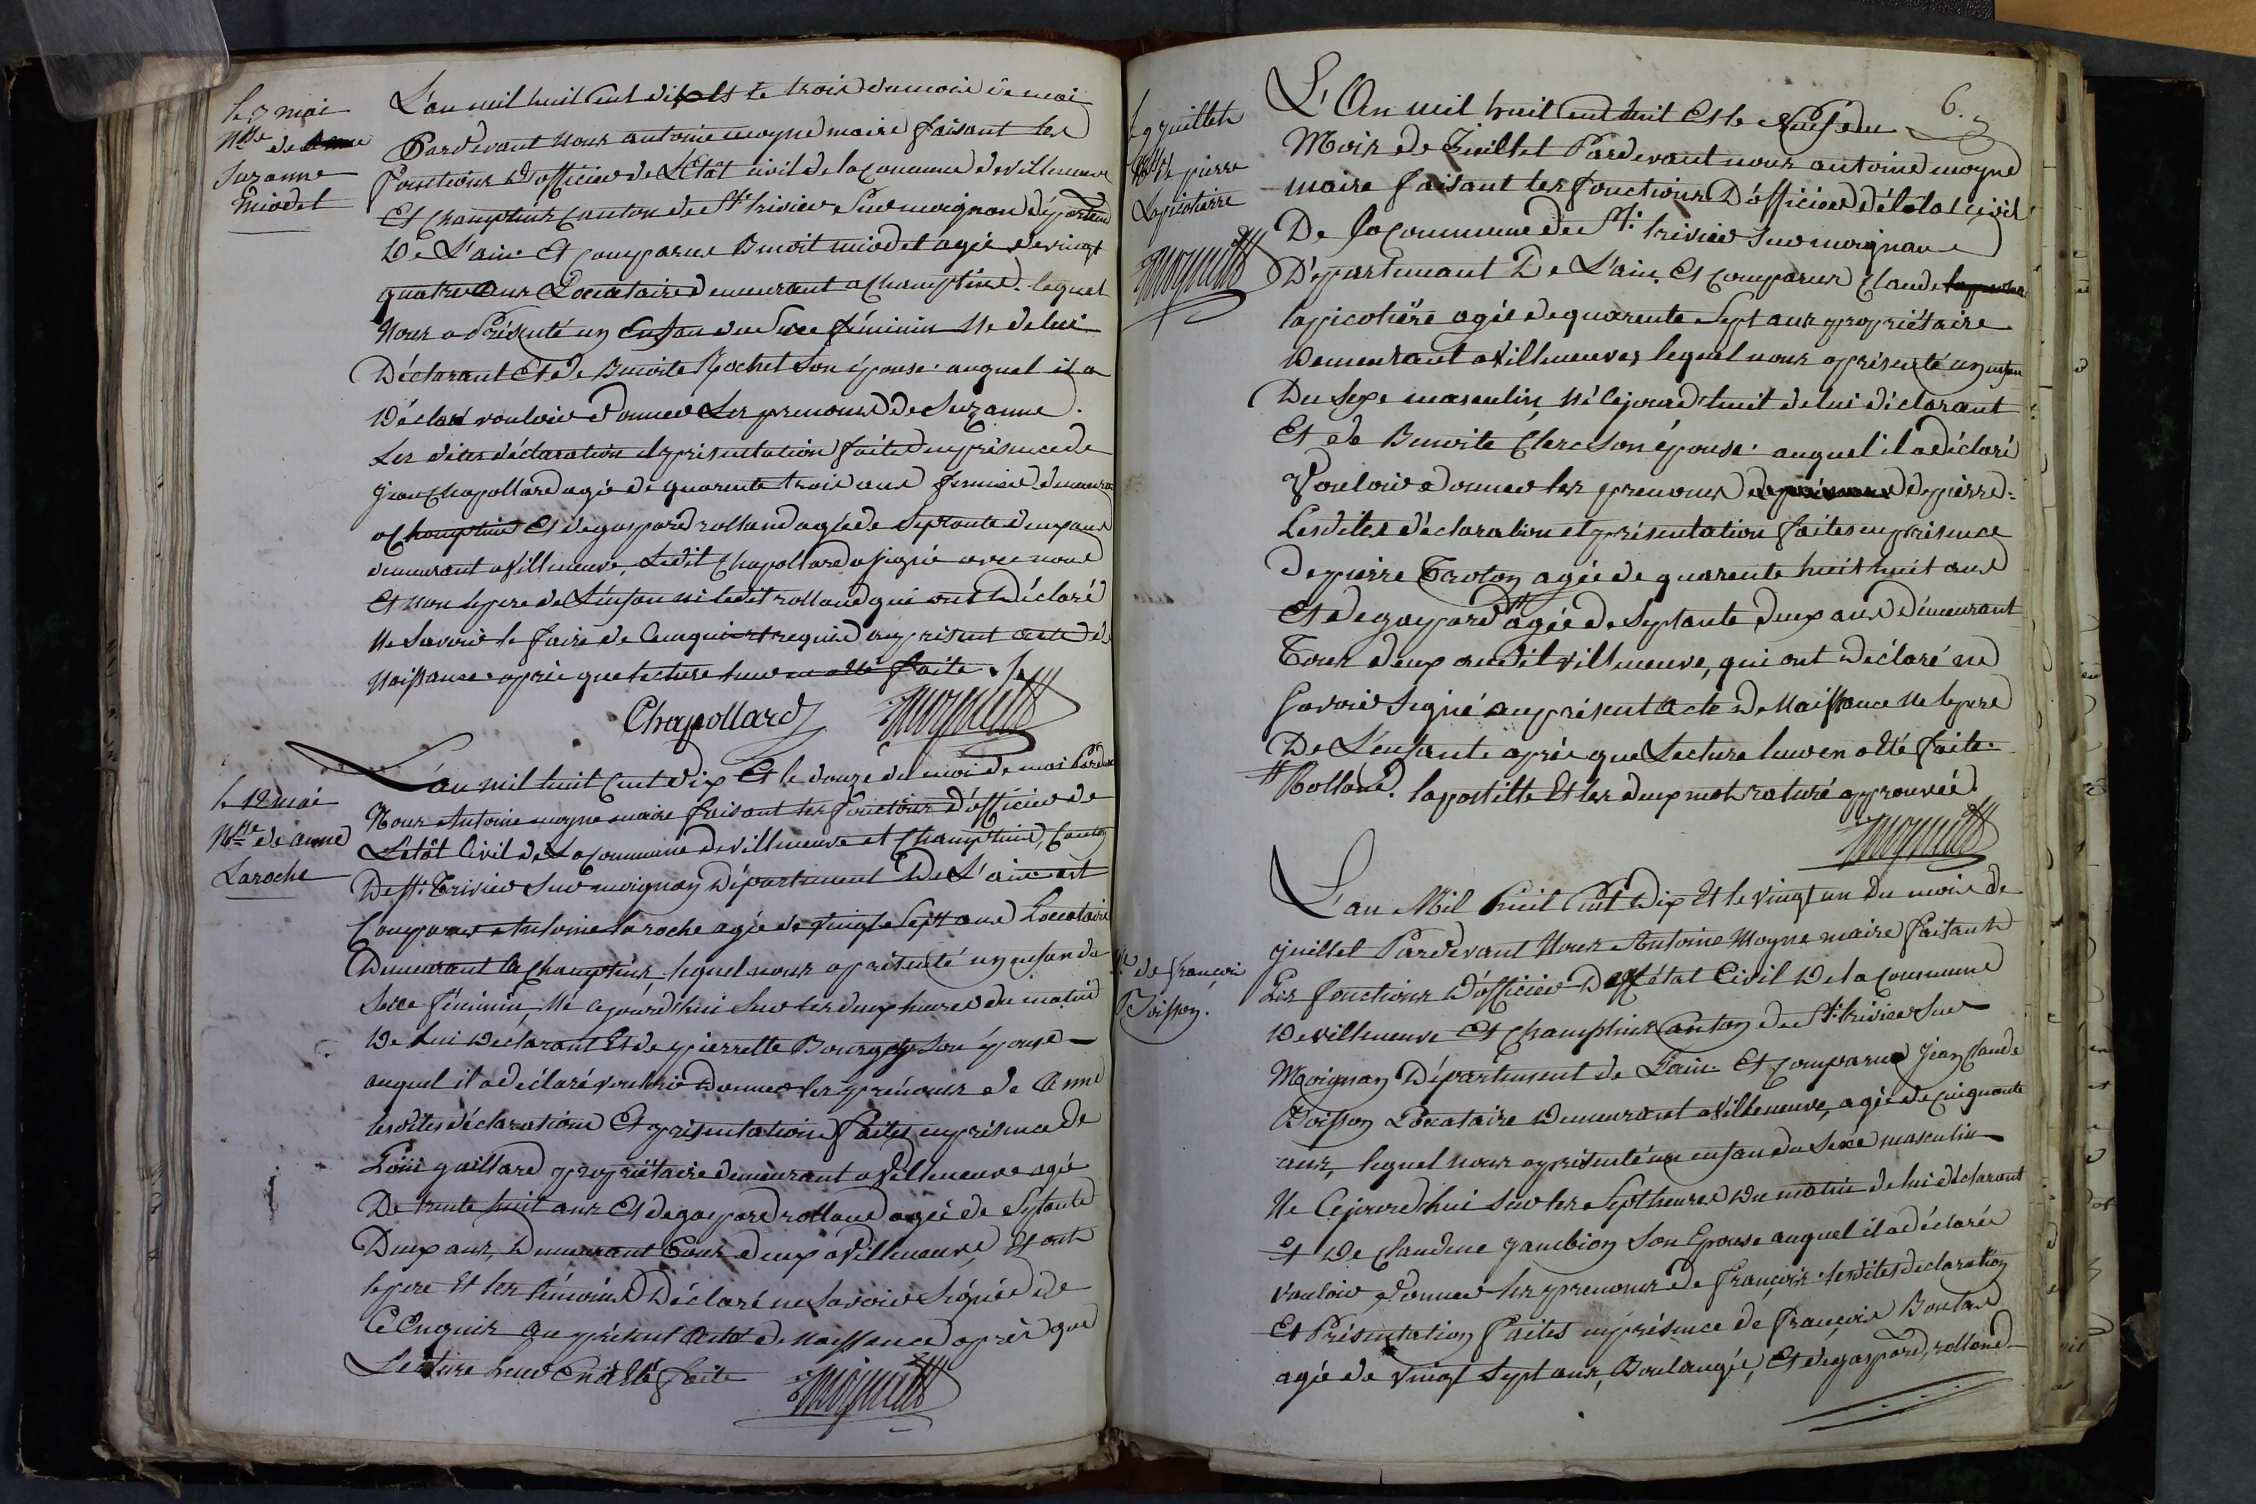 le 3 mai
Nce de
Suzanne
miodet
L'an mil huit cent dix et le trois du mois de mai
Pardevant nous antoine moyne maire faisant les
fonctions d'officier de L'état civil de la commune de villeneuve
Et Champteins Canton de St trivier Sur moignans département
De L'ain Et comparu Benoit miodet agée de vingt
quatre ans Locataire demeurant a Champteins. lequel
Nous a Présenté un Enfan du Sexe féminin Né de lui
Déclarant Et de Benoite Rochet Son épouse. auquel il a
Déclaré vouloir donner Les prenoms de Suzanne.
Les dites déclaration et présentation faite en présence de
Jean Chapollard agée de quarente trois ans demeurant
a Champteins Et de gaspard rolland agée de Septante deux ans
demeurant a Villeneuve, Ledit Chapollard a Signé avec nous
Et non le pere de L'enfan ni ledit rolland qui ont Déclaré
Ne Savoir le faire de ce enquis et requis au présent acte de
Naissance après que lecture leur en a été faite.
Chapollard
le 12 mai
Nce de anne
Laroche
L'an mil huit Cent dix Et le douze du moi de mai Pardevant
Nous Antoine moyne maire faisant les fonctions D'officier de
L'état Civil de La Commune de villeneuve et Champteins, Canton
De St Trivier Sur moignan Département De L'ain est
Comparu Antoine Laroche agée de vingt Sept ans Locataire
Demeurant a Champteins, lequel nous a présenté un enfan du
Sexe féminin, Né cejourd'hui Sur les deux heures du matin
De Lui Déclarant Et de pierrette Bourgey Son épouse
auquel il a déclaré vouloir donner les prénoms de Anne
lesdites déclarations Et présentation faites en présence de
Loüi gaillard propriétaire demeurant a Villeneuve agée
De trente huit ans Et de gaspard rolland agée de Septante
Deux ans, Demeurant Tous deux a Villeneuve, Et ont
le pere Et les témoins Déclaré ne Savoir Signée de
Ce Enquis au présent Acte de Naissance après que
Lecture leur En a Eté faite
6.
le 9 juillet
Nce de pierre
Lapicotière
L'An mil huit cent huit Et le Neuf du
Mois de Juillet Pardevant nous antoine moyne
maire faisant les fonctions D'officier de l'état civil
De la Commune de St: trivier Sur moignans
Département De L'ain. Et comparu Claude
lapicotière agée de quarente Sept ans propriétaire
Demeurant a Villeneuve, lequel nous a présenté un enfan
Du Sexe masculin, Né Cejourd'huit de lui déclarant
Et de Benoite Clerc Son épouse. auquel il a déclaré
Vouloir donner les prenoms de pierre.
Lesdites déclaration et présentation faites en présence
De pierre Croton agée de quarente huit huit ans
Et de gaspard # agée de Septante deux ans demeurant
Tous deux audit villeneuve, qui ont Déclaré ne
Savoir Signé au présent Acte De Naissance Ne le pere
De L'enfant après que Lecture leur en a été faite.
# Rolland. lapostille Et les deux mot raturé approuvée.
Nce de françois
Poisson.
L'an Mil huit Cent Dix Et le vingt un du mois de
juillet Pardevant Nous Antoine Moyne maire faisant
Les fonctions D'officier De l'état Civil De la commune
De villeneuve Et Champteins Canton de St: trivier Sur
Moignan Département de L'ain Et Comparu Jean Claude
Poisson Locataire Demeurant a Villeneuve, agée de Cinquante
ans, lequel nous a présenté un enfan du Sexe masculin
Né Cejourd'hui Sur les Sept heures Du matin de lui déclarant
Et De Claudine gambion Son Epouse auquel il a déclarée
vouloir donner les prenoms de françois. lesdites déclaration
Et Présentation faites en présence de françois
agée de vingt Sept ans, Boulangée, Et de gaspard rolland